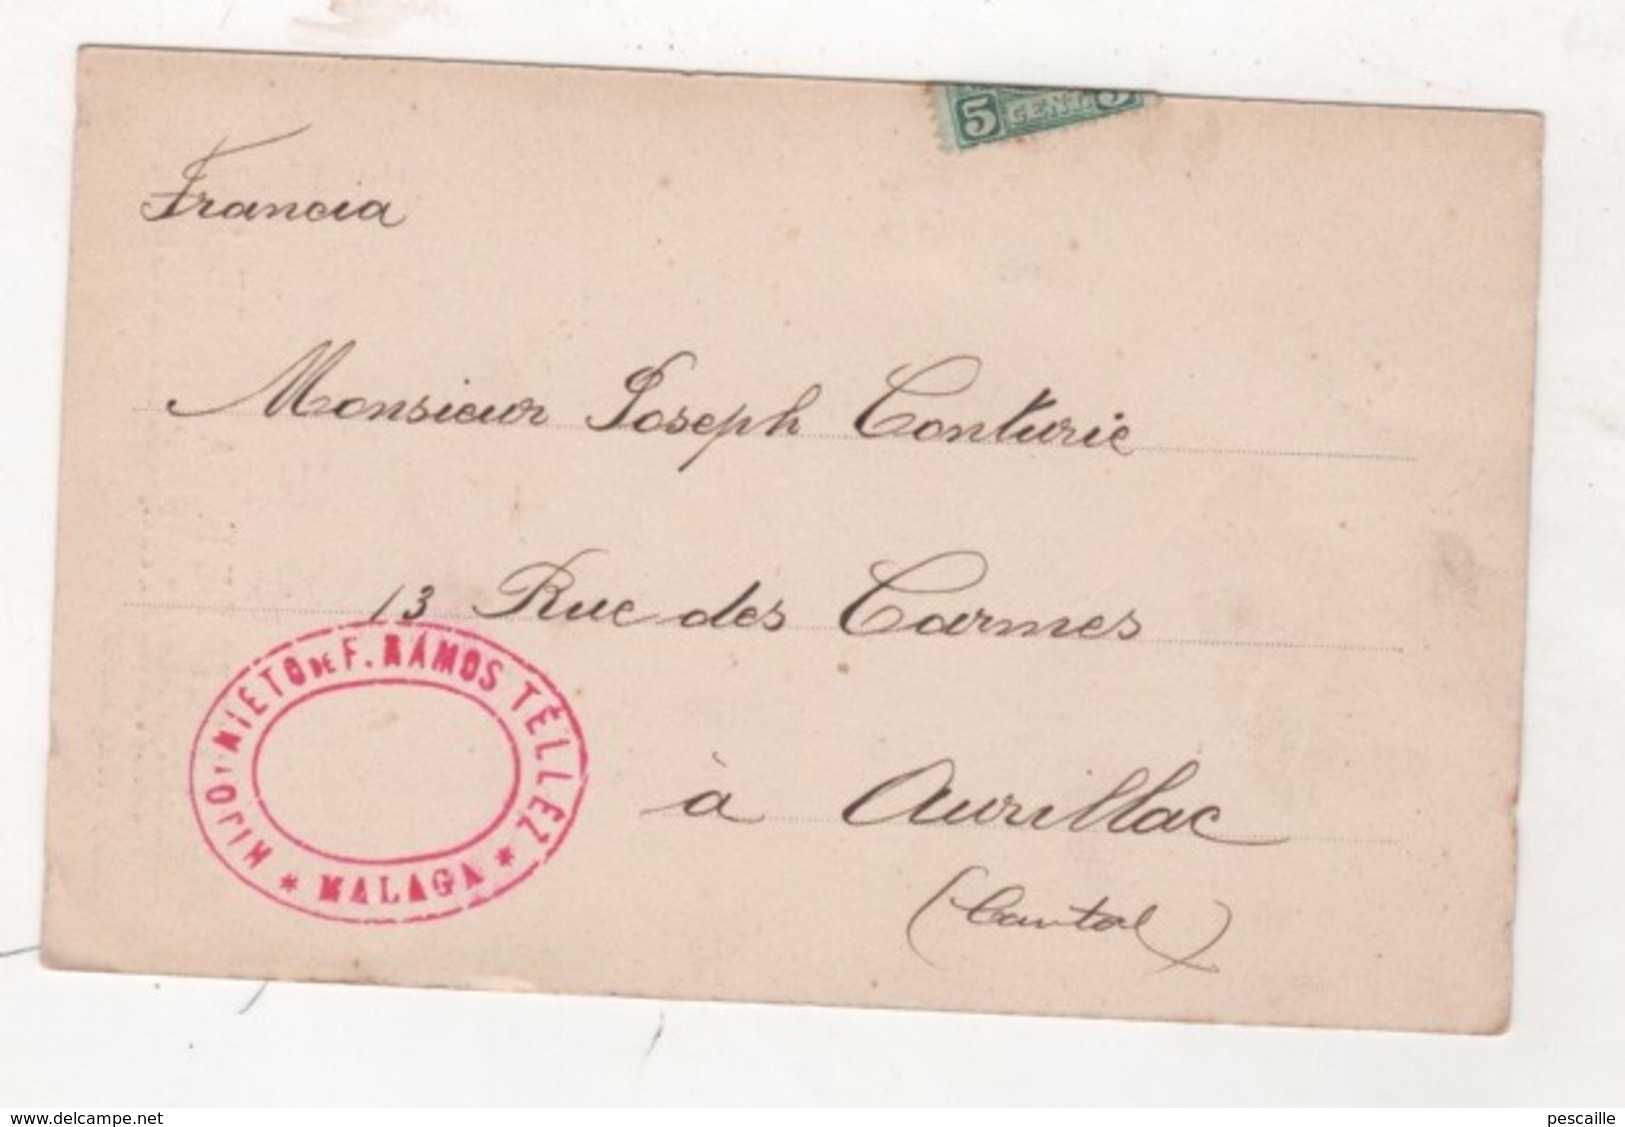 5 CENT. 5
Francia
Monsieur Joseph Conturie
13 Rue des Carmes
HIJO Y NIETO DE F. RAMOS TÉLLEZ
* MALAGA *
à Aurillac
(Cantal)
www.delcampe.net
pescaille